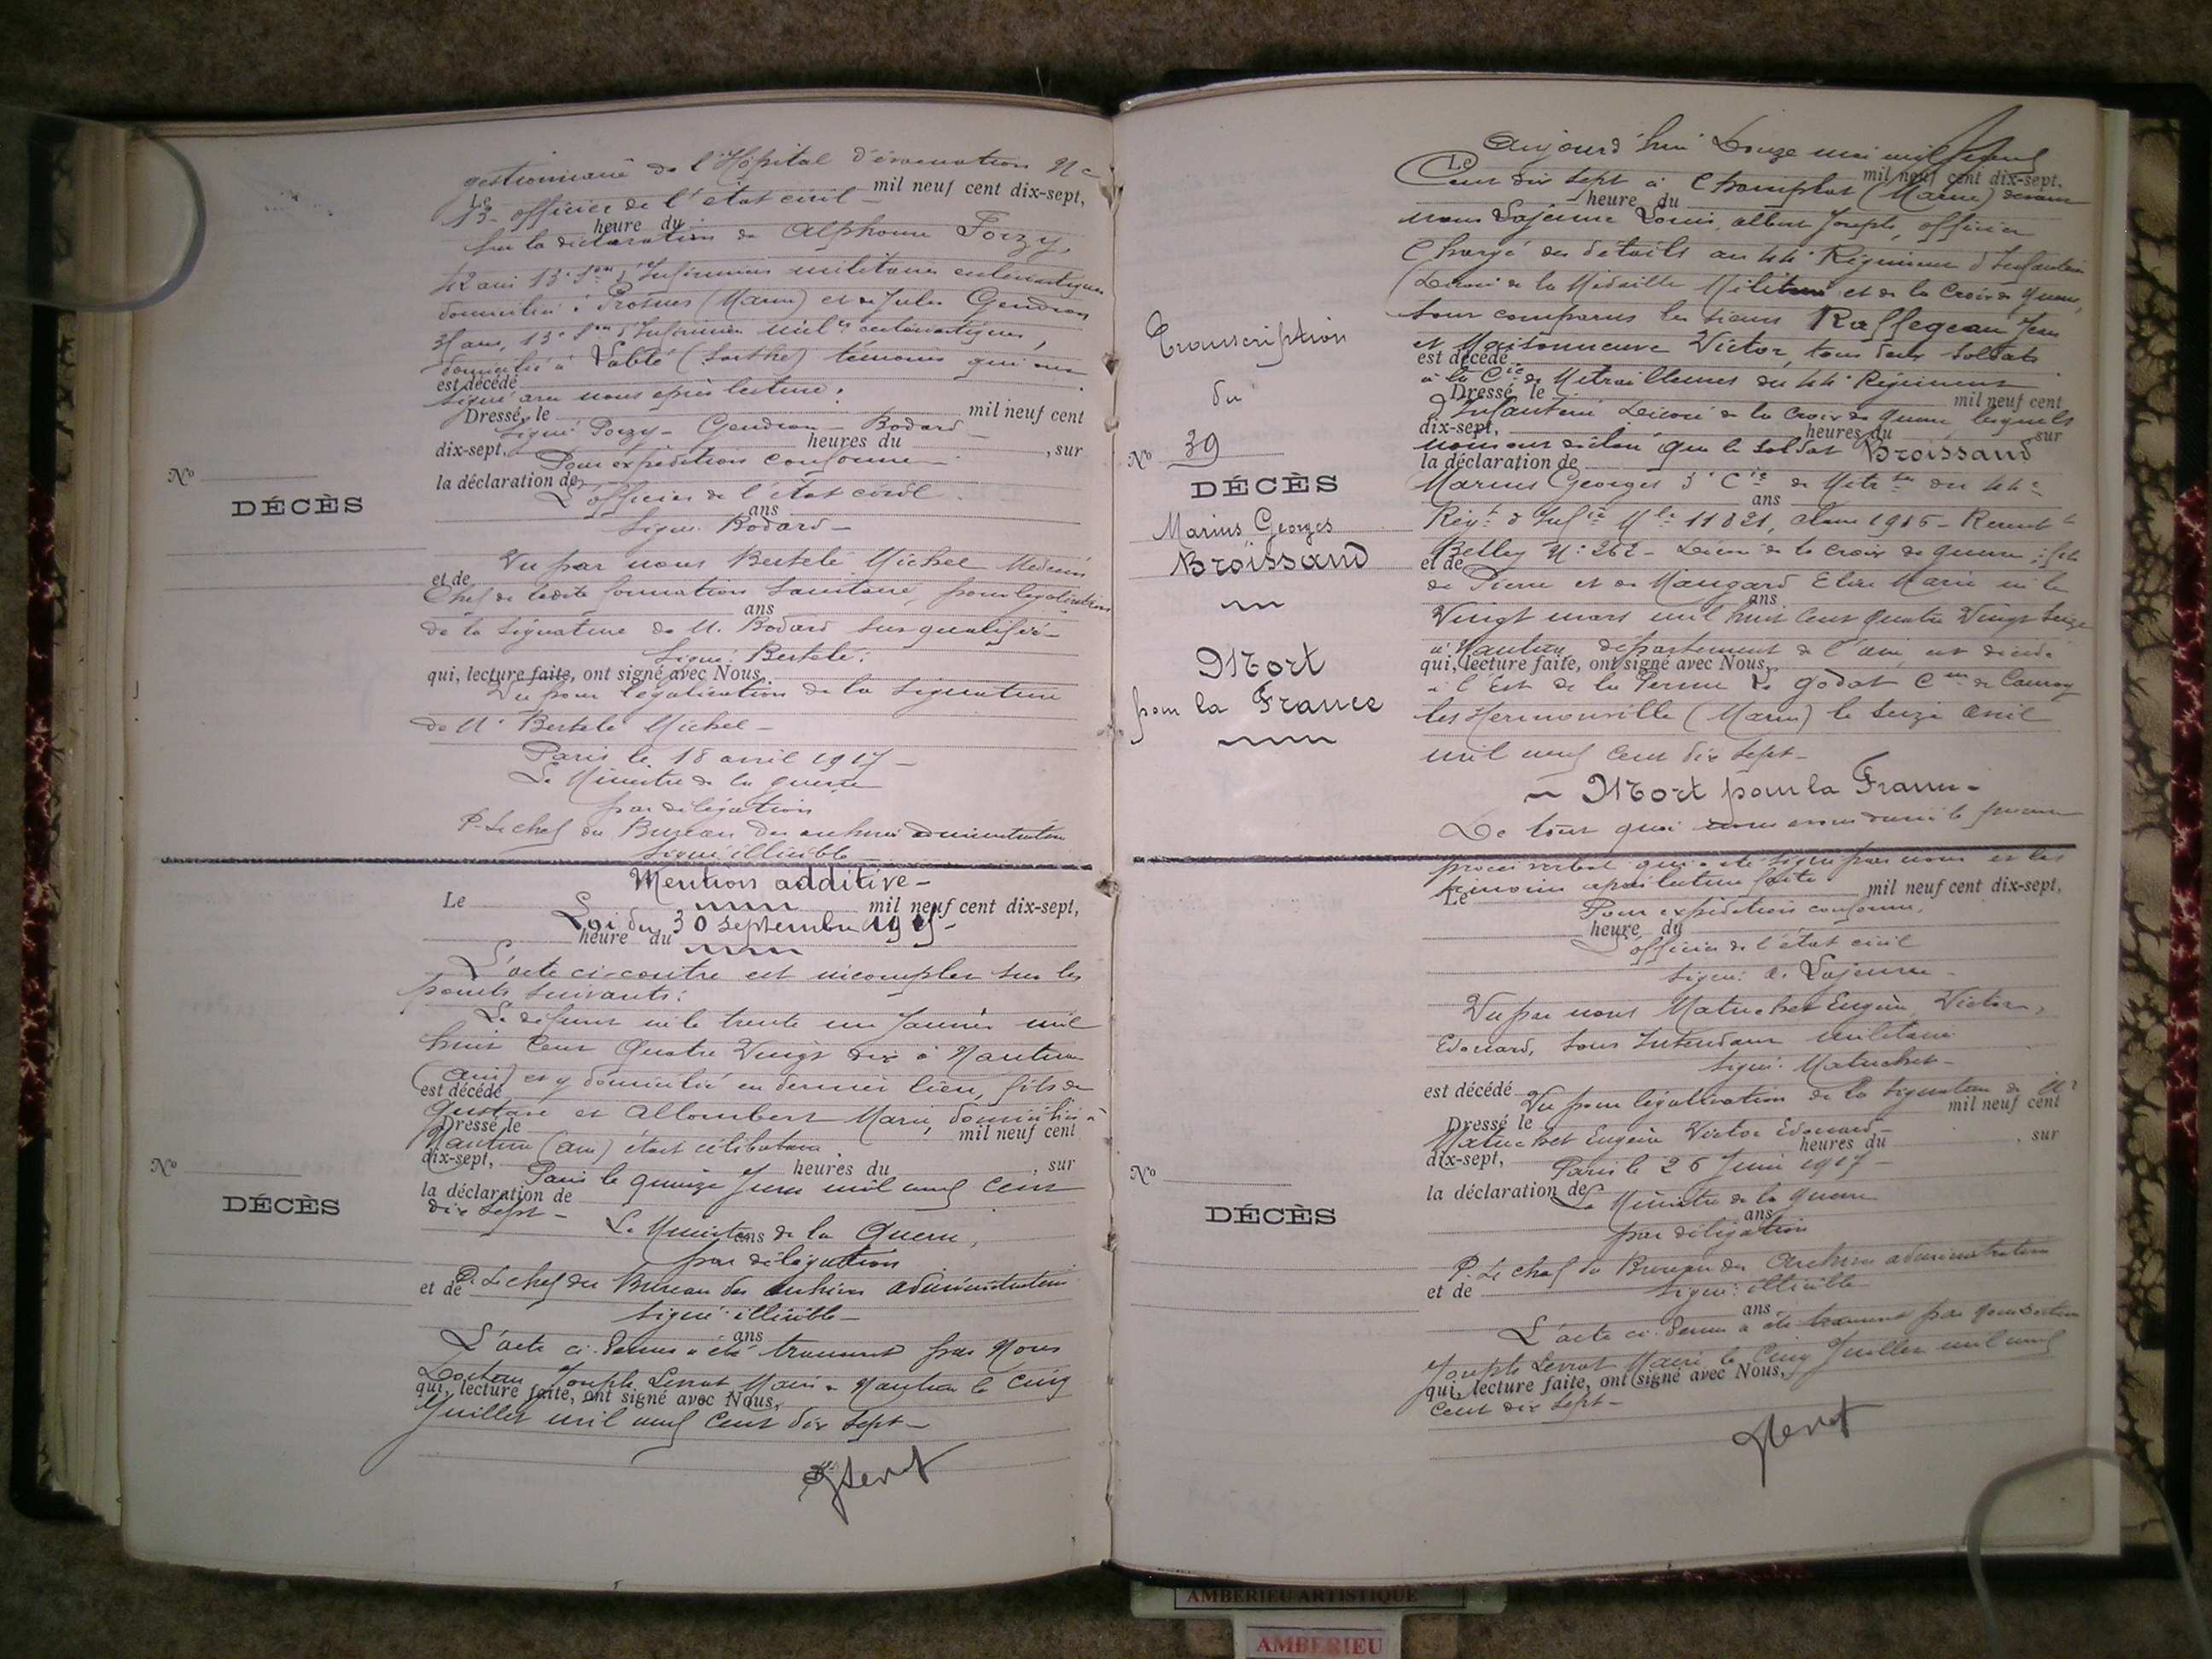 gestionnaire de l'Hôpital d'évacuation No
Le mil neuf cent dix-sept,
13 - officier de l'état civil -
heure du
Sur la déclaration de Alphonse Forzy,
42 ans 13e Son d'Infirmiers militaires ecclésiastiques
domicilié à Prosnes (Marne) et de Jules Gendron
ans, 13e Son d'Infirmiers milres ecclésiastiques,
domicilié à Sablé (Sarthe) témoins qui ont
est décédé
signé avec nous après lecture.
Dressé, le mil neuf cent
Signé Forzy - Gendron - Bodard -
dix-sept, heures du , sur
Pour expédition conforme -
la déclaration de
L'officier de l'état civil
No
DÉCÈS
ans
Signé: Bodard -
Vu par nous Bertelé Michel Médecin
et de
Chef de ladite formation sanitaire, pour légalisation
ans
de la signature de M. Bodard susqualifié -
Signé: Bertelé:
qui, lecture faite, ont signé avec Nous,
Vu pour légalisation de la signature
de Mr Bertelé Michel -
Paris le 18 avril 1917 -
Le Ministre de la guerre
par délégation
P. Le chef du Bureau des archives administratives
Signé illisible -
Mention additive -
Le mil neuf cent dix-sept,
Loi du 30 septembre 1915 -
heure du
L'acte ci-contre est incomplet sur les
points suivants:
Le défunt né le trente un Janvier mil
huit cent Quatre Vingt dix à Nantua
(Ain) et y domicilié en dernier lieu, fils de
est décédé
Gustave et Allombert Marie, domiciliés à
Dressé le mil neuf cent
Nantua (Ain) était célibataire.
dix-sept, heures du , sur
Paris le quinze Juin mil neuf cent
la déclaration de
dix sept -
No
DÉCÈS
Le Ministre de la Guerre,
ans
par délégation
P. Le chef du Bureau des archives administratives
et de
Signé: illisible -
ans
L'acte ci-dessus a été transcrit par Nous
Docteur Joseph Levrat Maire de Nantua le cinq
qui, lecture faite, ont signé avec Nous,
Juillet mil neuf cent dix sept -
Transcription
du
No 39
DÉCÈS
Marius Georges
Broissand
Mort
pour la France
Aujourd'hui Douze mai mil neuf
Le mil neuf cent dix-sept,
Cent dix sept à (Marne) devant
heure du
nous Lajeune Louis, albert Joseph, officier
Chargé des détails au 44e Régiment d'Infanterie
Décoré de la Médaille Militaire et de la Croix de Guerre,
sont comparus les sieurs Raffegeau Jean
et Maisonneuve Victor, tous deux soldats
est décédé
à la Cie de Mitrailleuses du 44e Régiment
Dressé le mil neuf cent
d'Infanterie Décoré de la Croix de Guerre, lesquels
dix-sept, heures du , sur
nous ont déclaré que le soldat Broissand
la déclaration de
Marius Georges 3e Cie de Mitrses du 44e
ans
Régt d'Infie Mle 11821, classe 1916 - Recrutt
Belley No 262 - Décoré de la croix de guerre; fils
et de
de Pierre et de Maugard Elise Marie né le
ans
Vingt mars mil huit cent Quatre Vingt Seize
à Nantua, département de l'ain est décédé
qui, lecture faite, ont signé avec Nous,
à l'Est de la Ferme le Godat Cne de Cauroy
les Hermonville (Marne) le Seize avril
mil neuf cent dix sept -
- Mort pour la France -
De tout quoi nous avons dressé le présent
procès verbal qui a été signé par nous et les
témoins après lecture faite
Le mil neuf cent dix-sept,
Pour expédition conforme,
heure du
L'officier de l'état civil
Signé: A. Lajeune -
Vu par nous Matuchet Eugène, Victor,
Edouard, Sous Intendant militaire
Signé: Matuchet -
est décédé
Vu pour légalisation de la signature de Mr
Dressé le mil neuf cent
Matuchet Eugène Victor Edouard -
dix-sept, heures du , sur
Paris le 26 Juin 1917 -
la déclaration de
Le Ministre de la Guerre
No
DÉCÈS
ans
par délégation
P. Le chef du Bureau des Archives administratives
et de
Signé: illisible
ans
L'acte ci-dessus a été transcrit par Nous Docteur
Joseph Levrat Maire le Cinq Juillet mil neuf
qui, lecture faite, ont signé avec Nous,
cent dix sept -
AMBERIEU ARTISTIQUE
AMBERIEU